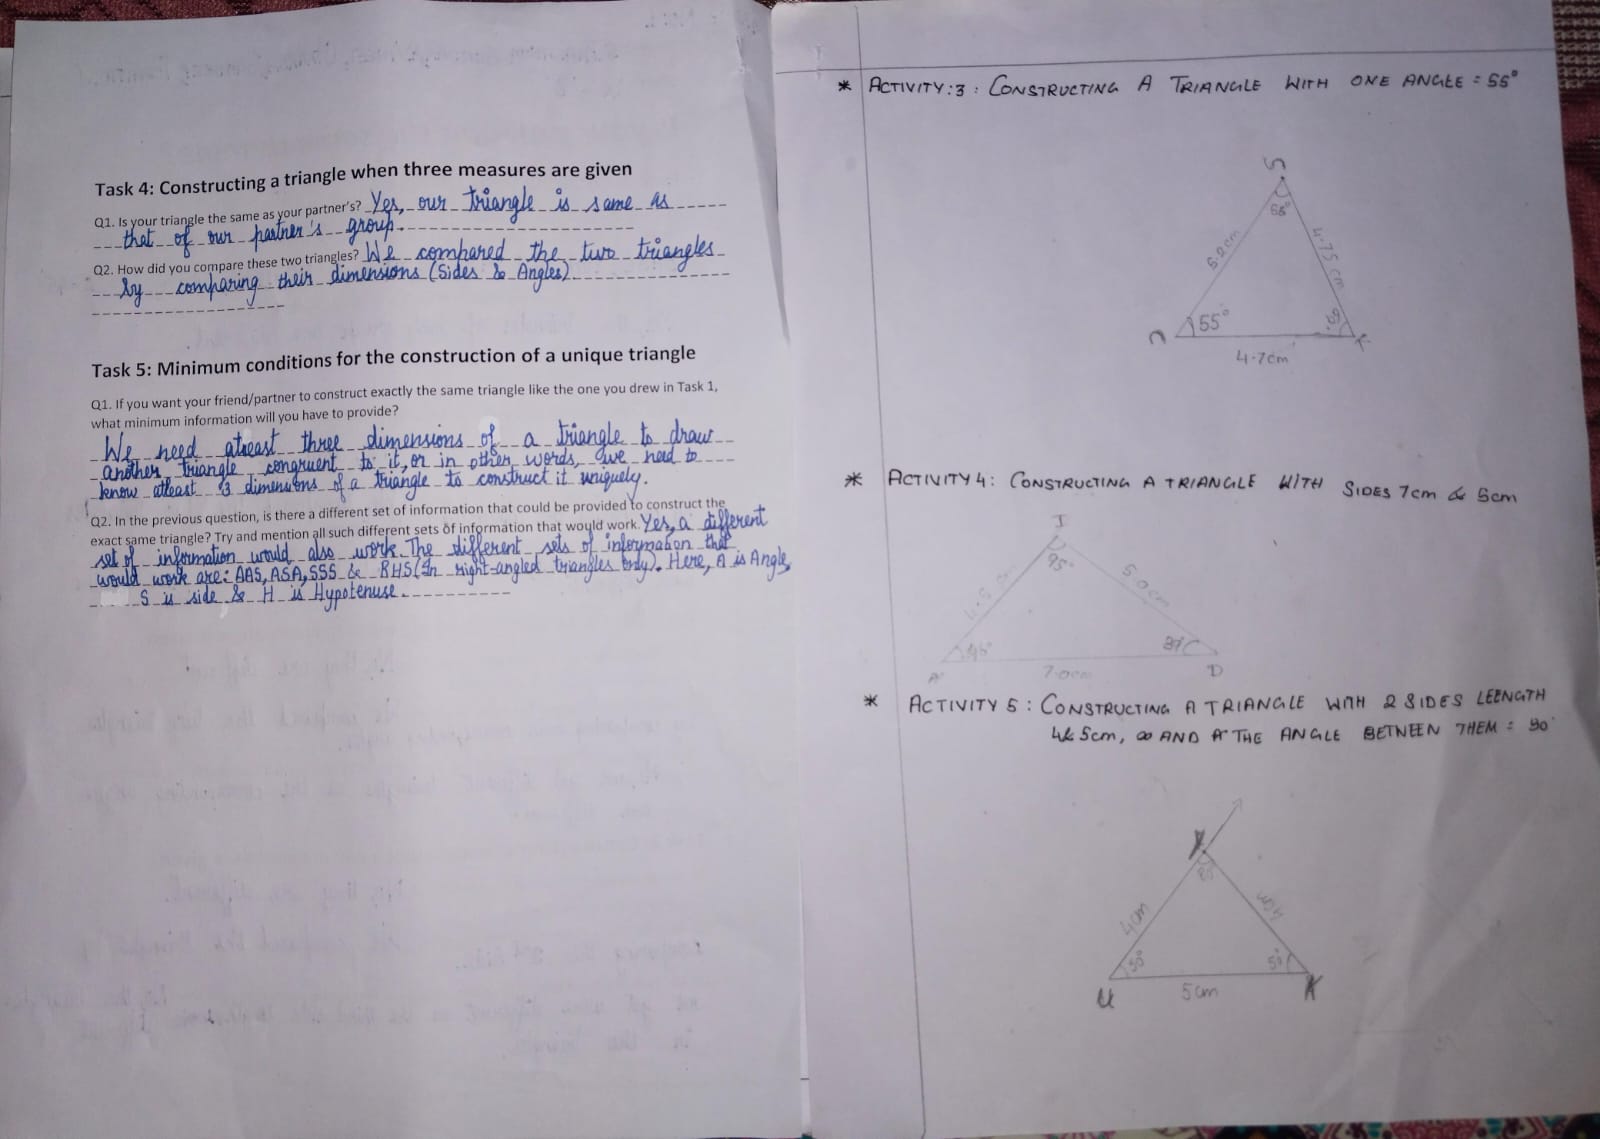 Task 4: Constructing a triangle when three measures are given
Q1. Is your triangle the same as your partner's? Yes, our triangle is same as
that of our partner's group.
Q2. How did you compare these two triangles? We compared the two triangles
by comparing their dimensions (Sides & Angles)
Task 5: Minimum conditions for the construction of a unique triangle
Q1. If you want your friend/partner to construct exactly the same triangle like the one you drew in Task 1,
what minimum information will you have to provide?
We need atleast three dimensions of a triangle to draw
another triangle congruent to it, or in other words, we need to
know atleast 3 dimensions of a triangle to construct it uniquely.
Q2. In the previous question, is there a different set of information that could be provided to construct the
exact same triangle? Try and mention all such different sets of information that would work. Yes, a different
set of information would also work. The different sets of information that
would work are: AAS, ASA, SSS & RHS (In right-angled triangles only). Here, A is Angle,
S is side & H is Hypotenuse.
* ACTIVITY:3 : CONSTRUCTING A TRIANGLE WITH ONE ANGLE = 55°
S
4.75 cm
55°
4.7cm
* ACTIVITY 4: CONSTRUCTING A TRIANGLE WITH SIDES 7cm & 5cm
I
95°
5.0cm
7.0cm
D
* ACTIVITY 5 : CONSTRUCTING A TRIANGLE WITH 2 SIDES LEENGTH
4& 5cm, AND THE ANGLE BETWEEN THEM =
80°
4cm
4cm
50°
U
5cm
K